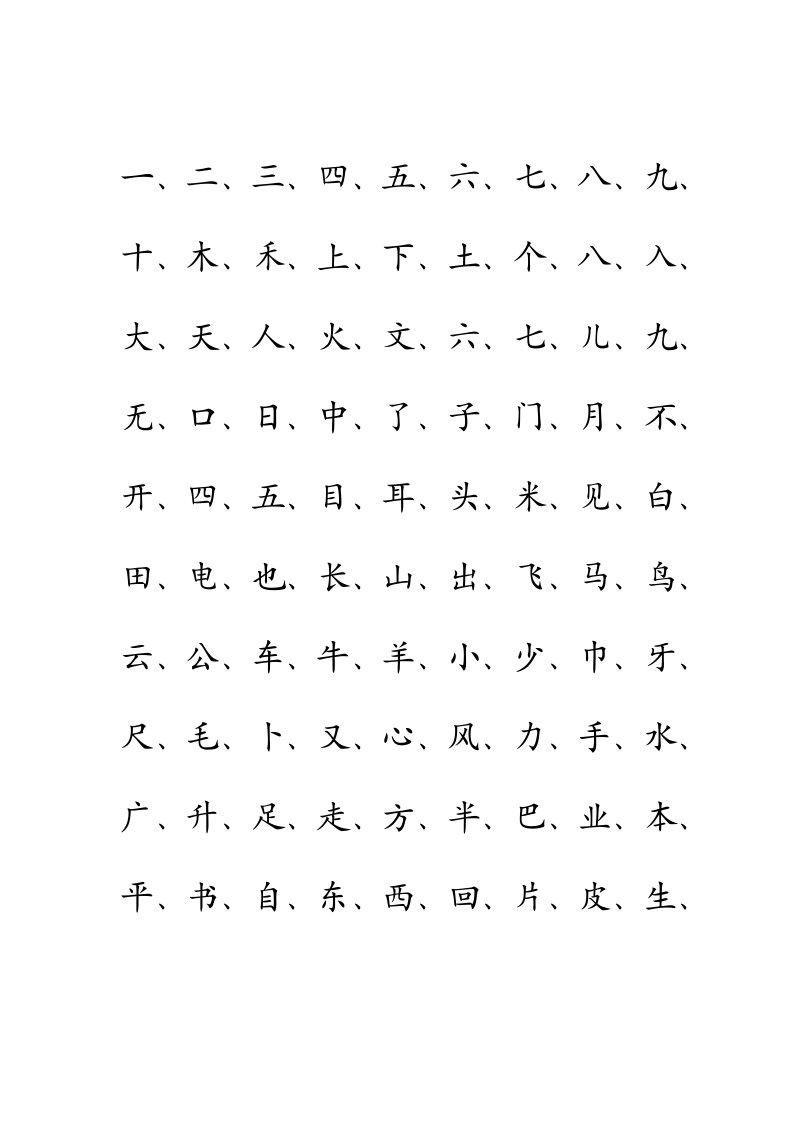 一、二、三、四、五、六、七、八、九、
十、木、禾、上、下、土、个、八、入、
大、天、人、火、文、六、七、儿、九、
无、口、日、中、了、子、门、月、不、
开、四、五、目、耳、头、米、见、白、
田、电、也、长、山、出、飞、马、鸟、
云、公、车、牛、羊、小、少、巾、牙、
尺、毛、卜、又、心、风、力、手、水、
广、升、足、走、方、半、巴、业、本、
平、书、自、东、西、回、片、皮、生、